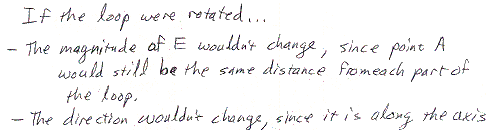 If the loop were rotated...
- The magnitude of E wouldn't change, since point A
would still be the same distance from each part of
the loop.
- The direction wouldn't change, since it is along the axis